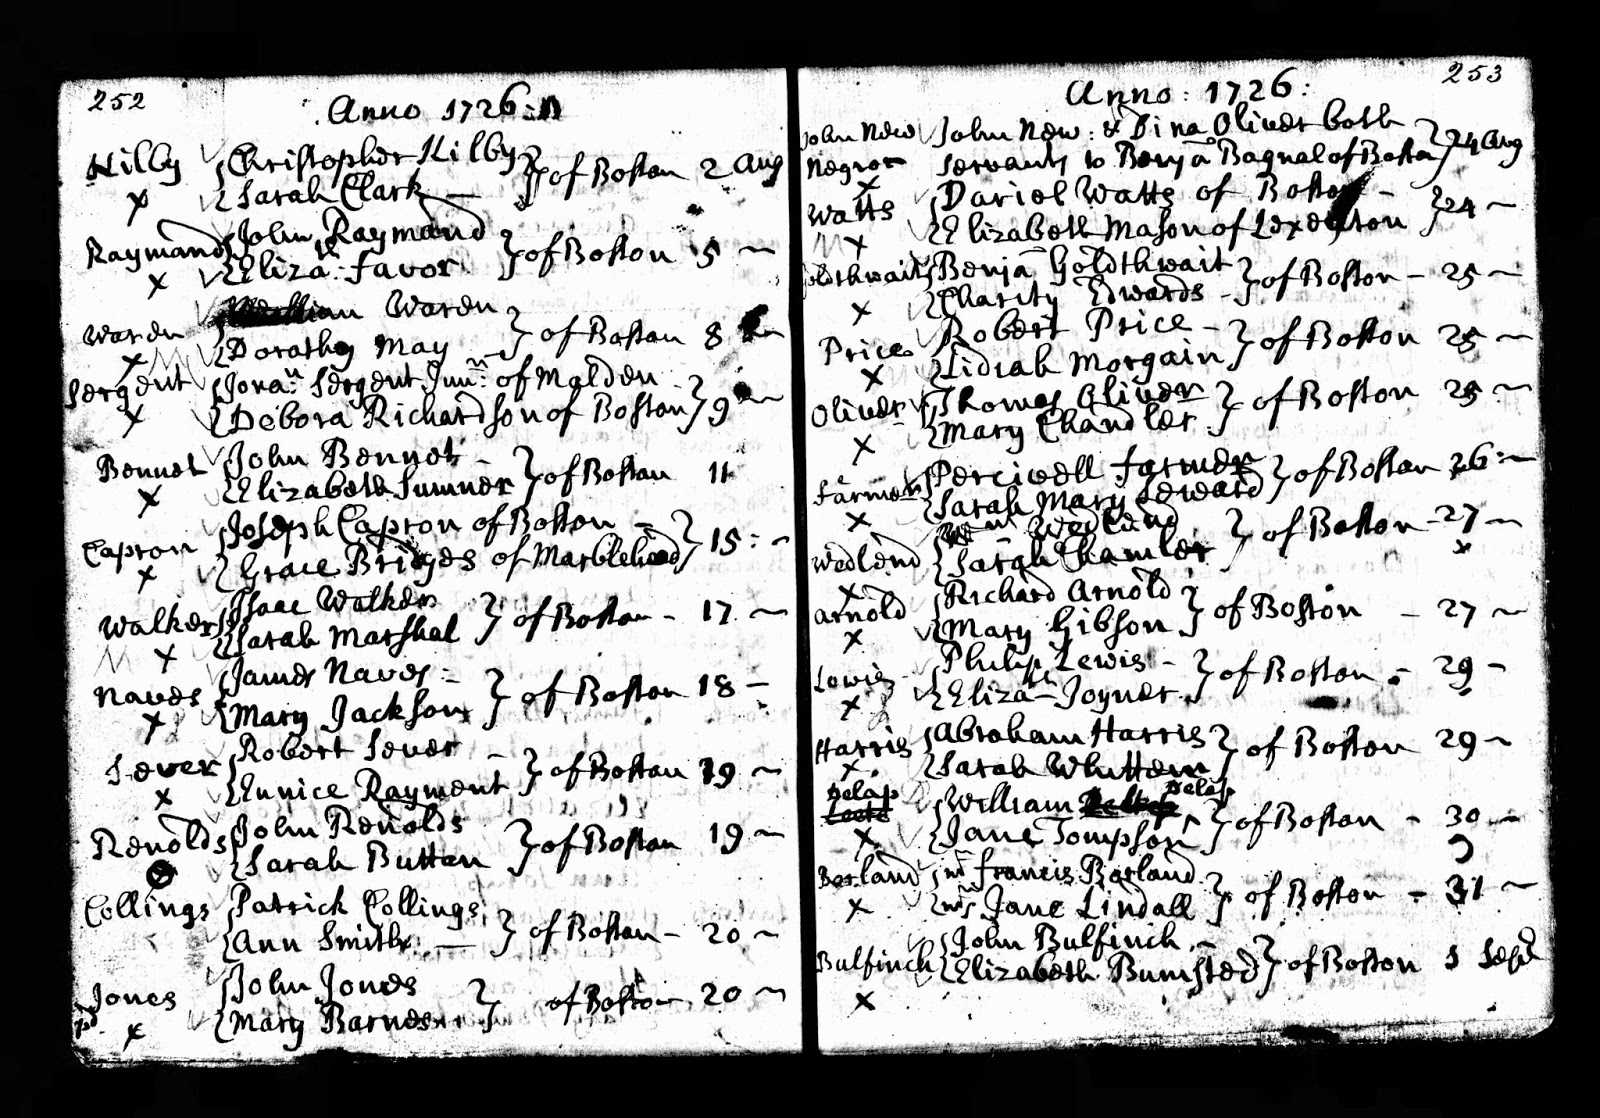 252
Anno 1726:
Kilby Christopher Kilby
Sarah Clark of Boston 2 Aug
x
Raymand John Raymand
Eliza:th Favor of Boston 5
x
Warden William Warden
Dorathy May of Boston 8
x
Sergent Jona:n Sergent Jun:r of Malden
Debora Richardson of Boston 9
x
Bennet John Bennet
Elizabeth Sumner of Boston 11
x
Capron Joseph Capron of Boston
Grace Bridges of Marblehead 15:
x
Walker Isaac Walker
Sarah Marshal of Boston 17
x
Naves James Naves
Mary Jackson of Boston 18
x
Sever Robert Sever
Eunice Rayment of Boston 19
x
Renolds John Renolds
Sarah Buttan of Boston 19
Collings Patrick Collings
Ann Smith of Boston 20
Jones John Jones
Mary Barnes of Boston 20
x
253
Anno: 1726:
John New John New: & Dina Oliver both
Negros Servants to Benja Bagnal of Boston 24 Aug
x
Watts Daniel Watts of Boston
Elizabeth Mason of Lexenton 24
x
Goldthwait Benja Goldthwait
Charity Edwards of Boston 25
x
Price Robert Price
Lidiah Morgain of Boston 25
x
Oliver Thomas Oliver
Mary Chandler of Boston 25
x
Farmer Percivell Farmer
Sarah Mary Seward of Boston 26:
x
Wedlend Wm Wedlend
Sarah Chamler of Boston 27
x
Arnold Richard Arnold
Mary Gibson of Boston 27
x
Lewis Philip Lewis
Eliza:th Joyner of Boston 29
x
Harris Abraham Harris
Sarah Whuttem of Boston 29
x
Delap William Delap
Jane Tompson of Boston 30
x
Borland mr Francis Borland
mrs Jane Lindall of Boston 31
x
Bulfinch John Bulfinch
Elizabeth Bumsted of Boston 1 Sept
x